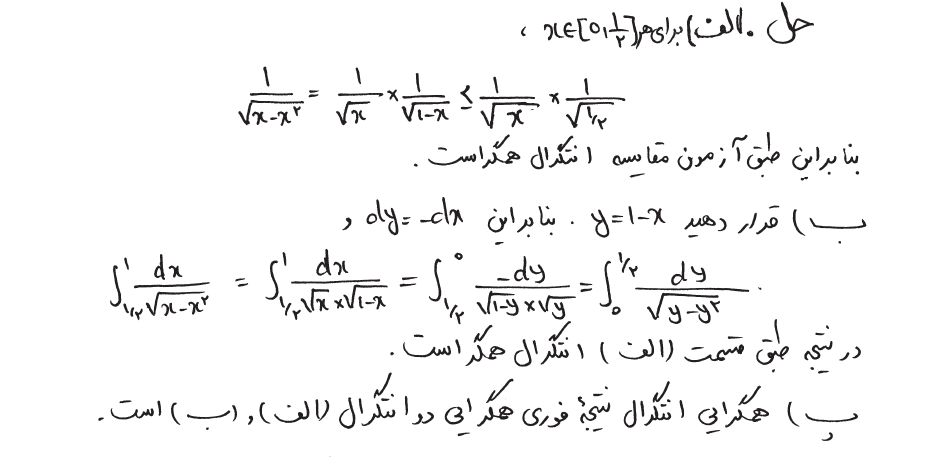 حل . الف) برای هر x∈[0,1/۲] ،
1/√(x-x^۲) = 1/√x × 1/√(1-x) ≤ 1/√x × 1/√(1/۲)
بنابراین طبق آزمون مقایسه انتگرال همگراست .
ب) قرار دهید y=1-x . بنابراین dy=-dx و
∫_{1/۲}^{1} dx/√(x-x^۲) = ∫_{1/۲}^{1} dx/(√x×√(1-x)) = ∫_{1/۲}^{0} -dy/(√(1-y)×√y) = ∫_{0}^{1/۲} dy/√(y-y^۲) .
در نتیجه طبق قسمت (الف) انتگرال همگراست .
پ) همگرایی انتگرال نتیجهٔ فوری همگرایی دو انتگرال (الف) و (ب) است .